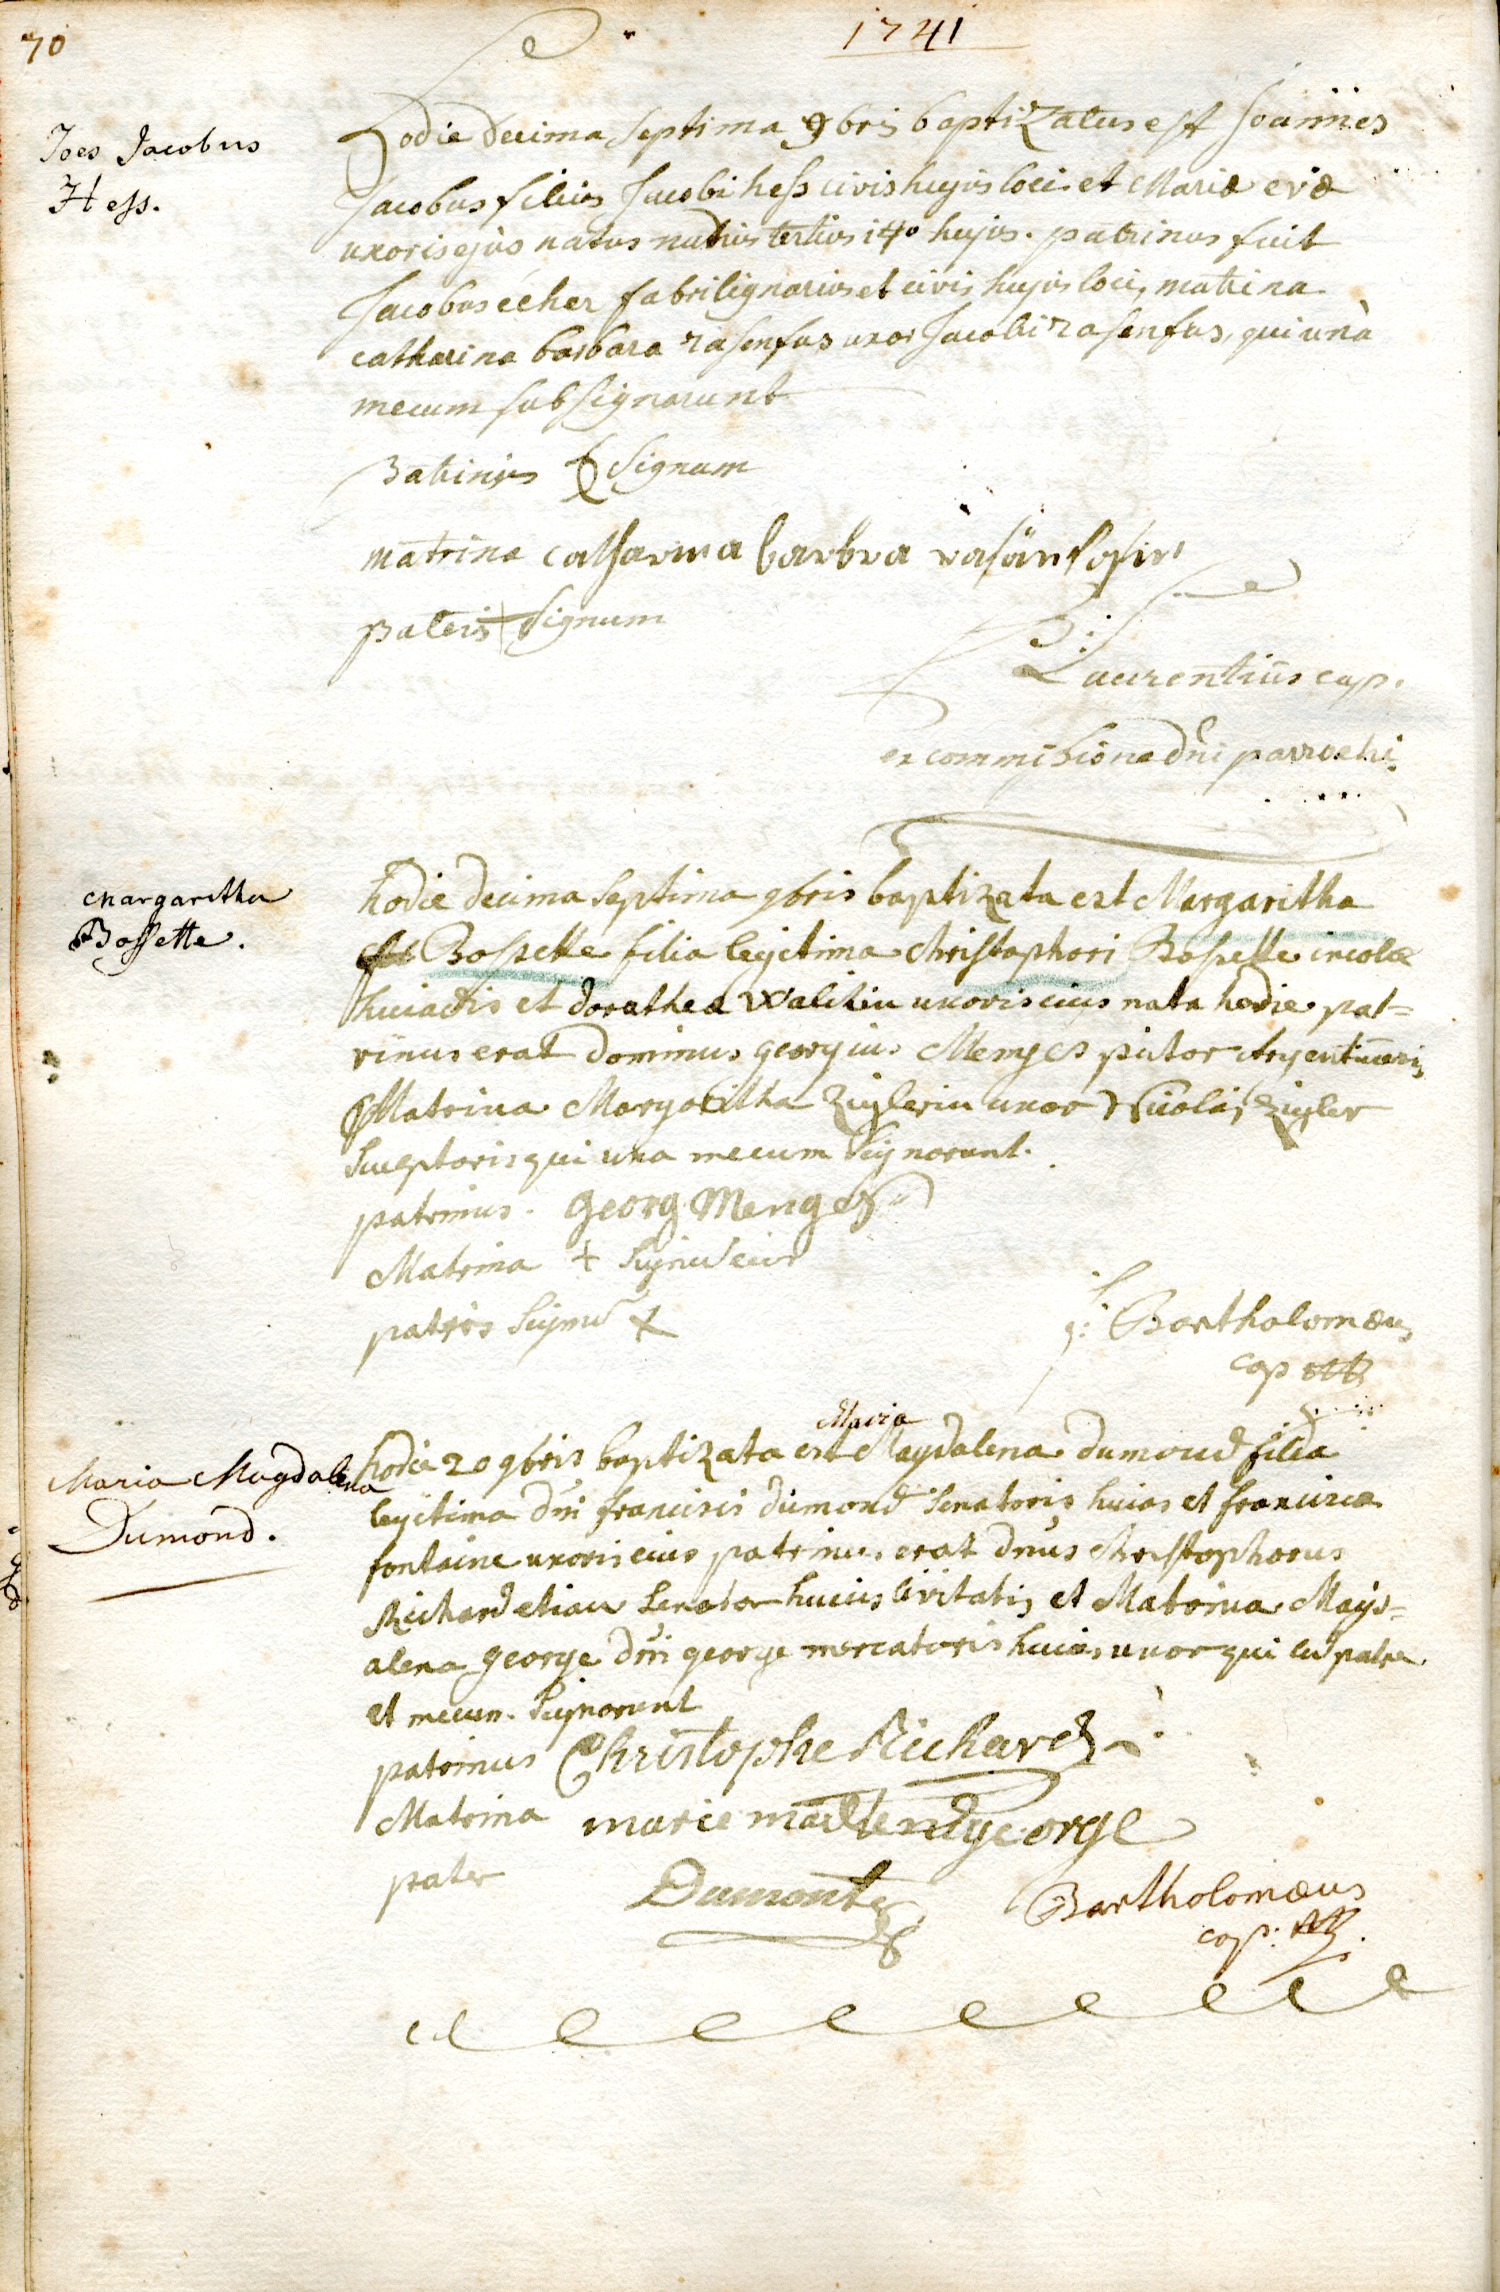 70
1741
Joes Jacobus
Hess.
Hodie decima septima 9bris baptizatus est Joannes
Jacobus filius Jacobi hess civis hujus loci et Mariæ evæ
uxoris ejus natus nudius tertius 14º hujus. patrinus fuit
Jacobus écher faber lignarius et civis hujus loci, matrina
catharina barbara rasenfus uxor Jacobi rasenfus, qui unà
mecum subsignarunt
Patrinus signum
matrina catharina barbra
patris + signum
Laurentius cap.
ex commissione dni parrochi
Margaritha
Bossette.
hodie decima septima 9bris baptizata est Margaritha
Bossette filia legitima christophori Bossette incolæ
huiatis et dorathea uxoris eius nata hodie pat=
rinus erat Dominus georgius Menges pictor Argentinensis
Matrina Margaritha Ziglerin uxor Nicolai Zigler
Sculptoris qui una mecum signarunt.
patrinus. georg Menges
Matrina + signū eius
patris signū +
Bartholomæus
cap
Maria Magdalena
Dumond.
Maria
hodie 20 9bris baptizata est Magdalena dumond filia
legitima dni francisci dumond senatoris huias et francisca
fontaine uxoris eius patrinus erat dnus christophorus
Richard etiam senator huius civitatis et Matrina Magd=
alena george dni george mercatoris huias uxor qui cū patre
et mecum signarunt
patrinus Christophe Richard
Matrina marie madlen george
pater Dumont
Bartholomæus
cap: